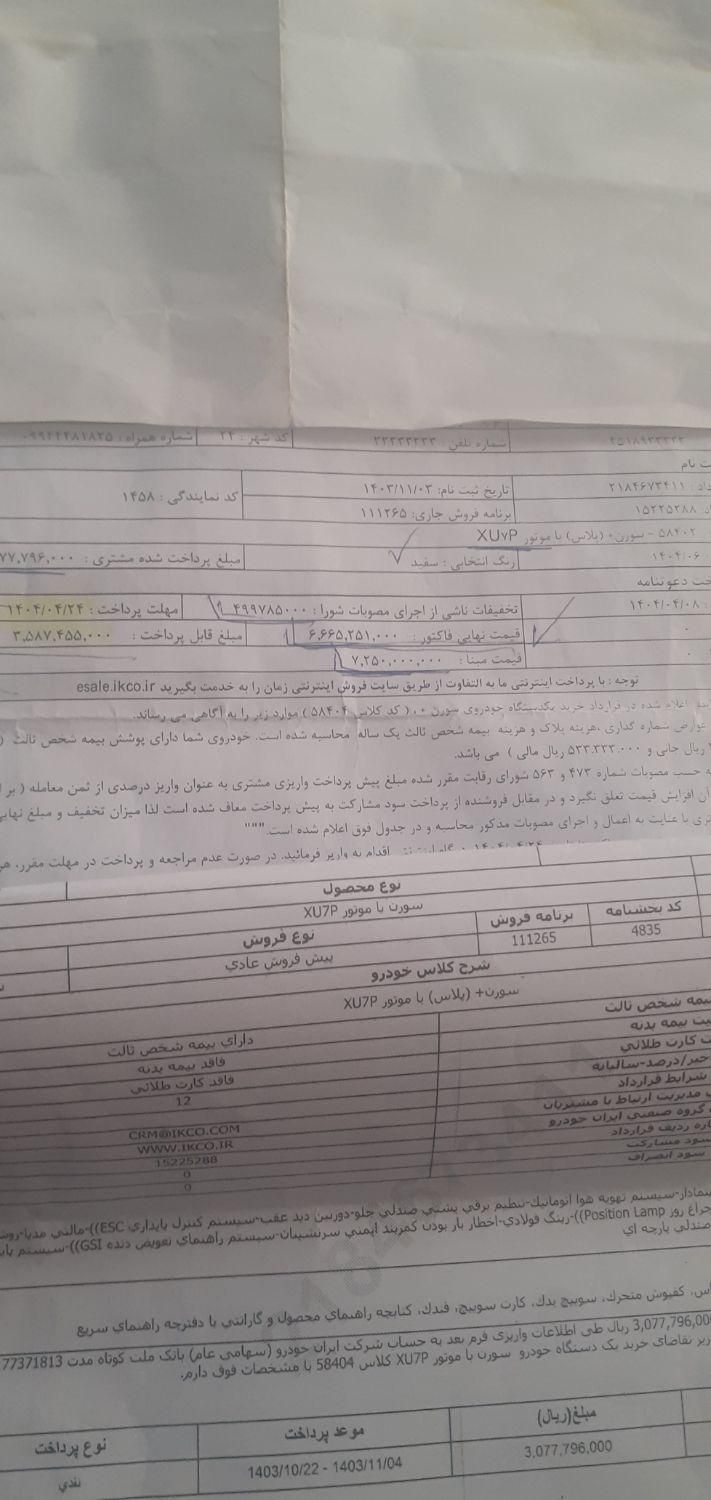 ۴۵۱۸۹۳۳۳۳۳ شماره تلفن : ۳۳۳۳۳۳۳۳ کد شهر : ۲۴ شماره همراه : ۰۹۹۲۴۲۸۱۸۲۵
ت نام
داد : ۲۱۸۴۶۷۳۴۱۱ تاریخ ثبت نام: ۱۴۰۳/۱۱/۰۳ کد نمایندگی : ۱۴۵۸
د: ۱۵۲۲۵۲۸۸ برنامه فروش جاری: ۱۱۱۲۶۵
۵۸۴۰۲ - سورن+ (پلاس) با موتور XU۷P
۱۴۰۴/۰۶ رنگ انتخابی : سفید مبلغ پرداخت شده مشتری : ۷۷,۷۹۶,۰۰۰
خت دعوتنامه
: ۱۴۰۴/۰۴/۰۸ تخفیفات ناشی از اجرای مصوبات شورا : ۴۹۹۷۸۵۰۰۰ مهلت پرداخت : ۱۴۰۴/۰۴/۲۴
قیمت نهایی فاکتور : ۶,۶۶۵,۲۵۱,۰۰۰ مبلغ قابل پرداخت : ۳,۵۸۷,۴۵۵,۰۰۰
قیمت مبنا : ۷,۲۵۰,۰۰۰,۰۰۰
توجه : با پرداخت اینترنتی ما به التفاوت از طریق سایت فروش اینترنتی زمان را به خدمت بگیرید esale.ikco.ir
اعلام شده در قرارداد خرید یکدستگاه خودروی سورن +، ( کد کلاس ۵۸۴۰۴ ) موارد زیر را به آگاهی می رساند.
عوارض شماره گذاری ،هزینه پلاک و هزینه بیمه شخص ثالث یک ساله محاسبه شده است. خودروی شما دارای پوشش بیمه شخص ثالث (
ریال جانی و ۵۳۳.۳۳۳.۰۰۰ ریال مالی ) می باشد.
ه حسب مصوبات شماره ۴۷۳ و ۵۶۳ شورای رقابت مقرر شده مبلغ پیش پرداخت واریزی مشتری به عنوان واریز درصدی از ثمن معامله ( بر ا
آن افزایش قیمت تعلق نگیرد و در مقابل فروشنده از پرداخت سود مشارکت به پیش پرداخت معاف شده است لذا میزان تخفیف و مبلغ نهایی
تری با عنایت به اعمال و اجرای مصوبات مذکور محاسبه و در جدول فوق اعلام شده است."""
اقدام به واریز فرمائید. در صورت عدم مراجعه و پرداخت در مهلت مقرر، هر
نوع محصول
سورن با موتور XU7P
کد بخشنامه برنامه فروش نوع فروش
4835 111265 پیش فروش عادي
شرح کلاس خودرو
سورن+ (پلاس) با موتور XU7P
یمه شخص ثالث داراي بیمه شخص ثالث
ت بیمه بدنه فاقد بیمه بدنه
ت کارت طلائي فاقد کارت طلائي
خیر/درصد-سالیانه 12
شرایط قرارداد
مدیریت ارتباط با مشتریان CRM@IKCO.COM
گروه صنعتي ایران خودرو WWW.IKCO.IR
اره ردیف قرارداد 15225288
سود مشارکت 0
سود انصراف 0
سیستم تهویه هوا اتوماتیك-تنظیم برقي پشتي صندلي جلو-دوربین دید عقب-سیستم کنترل پایداري ESC))-مالتي مدیا-روش
چراغ روز Position Lamp))-رینگ فولادي-اخطار باز بودن کمربند ایمني سرنشینان-سیستم راهنماي تعویض دنده GSI))-سیستم پای
صندلي پارچه اي
اس، کفپوش متحرك، سوییچ یدك، کارت سوییچ، فندك، کتابچه راهنماي محصول و گارانتي با دفترچه راهنماي سریع
3,077,796,00 ریال طي اطلاعات واریزي فرم بعد به حساب شرکت ایران خودرو (سهامي عام) بانک ملت کوتاه مدت 77371813
تقاضاي خرید یک دستگاه خودرو سورن با موتور XU7P کلاس 58404 با مشخصات فوق دارم.
مبلغ(ریال) موعد پرداخت نوع پرداخت
3,077,796,000 1403/10/22 - 1403/11/04 نقدي